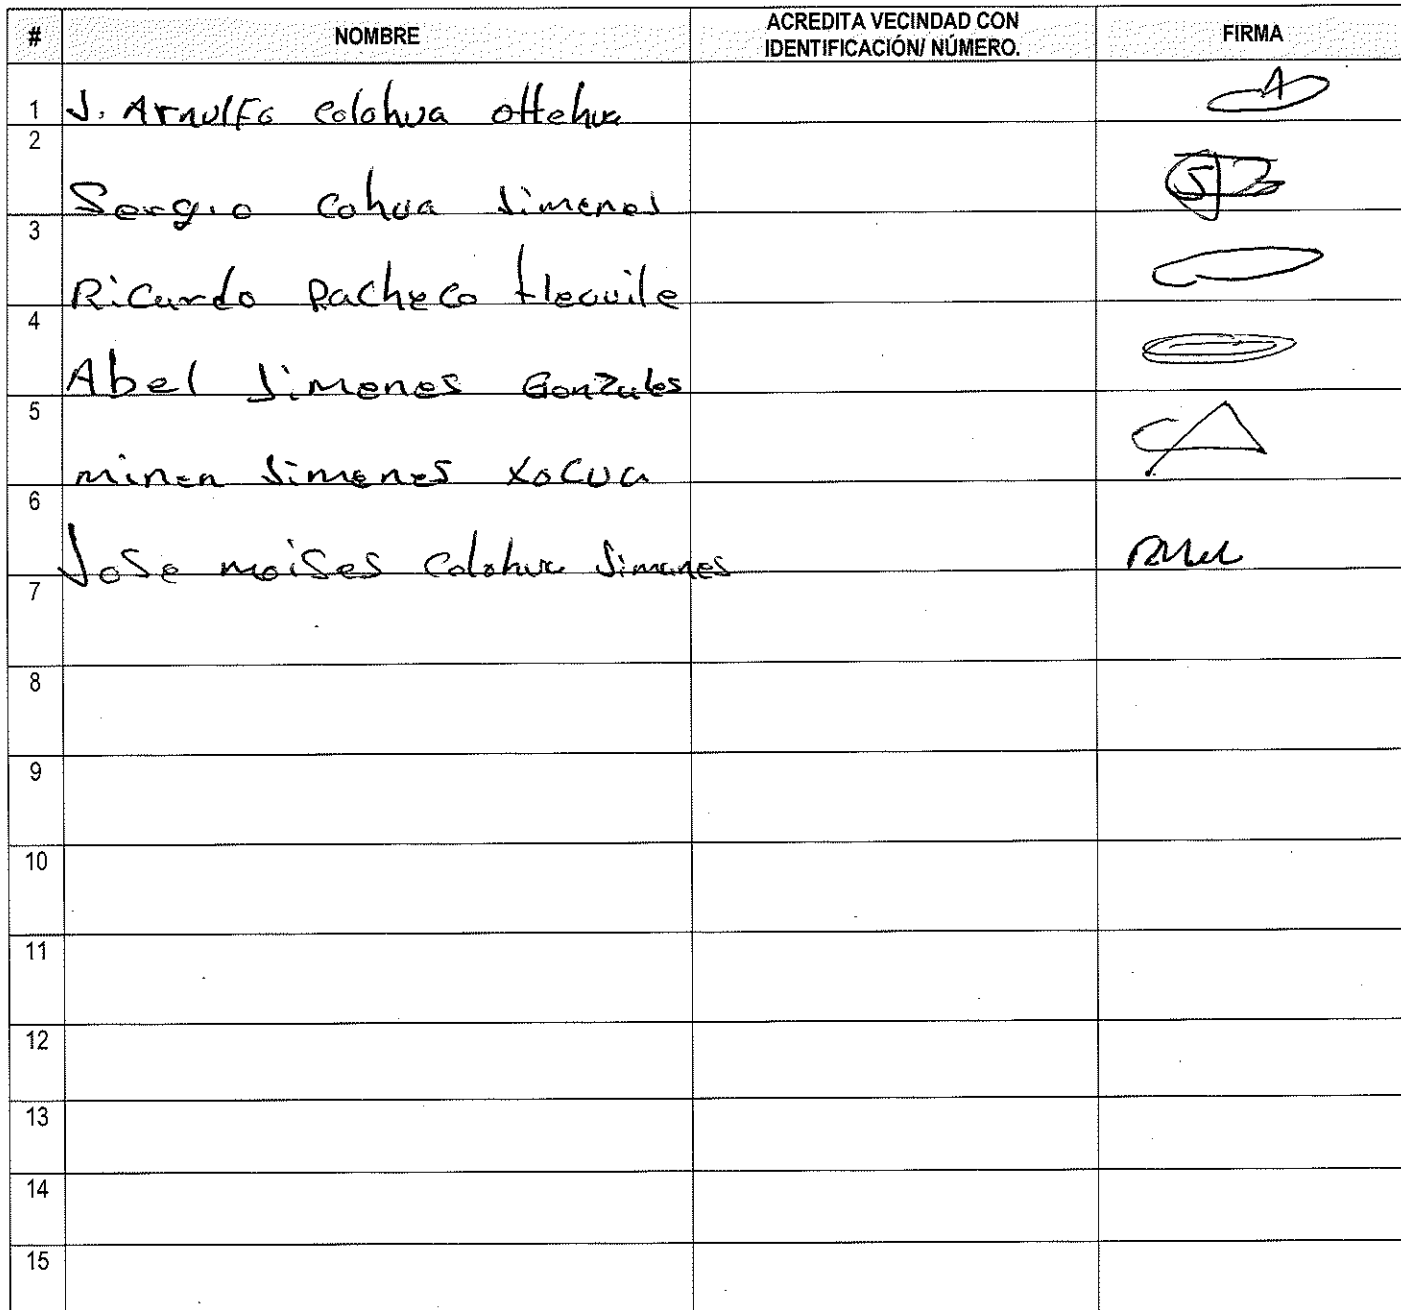 # NOMBRE ACREDITA VECINDAD CON IDENTIFICACIÓN/ NÚMERO. FIRMA
1 J. Arnulfo Colohua
2 Sergio Cohua Jimenes
3 Ricardo Pacheco tlecuile
4 Abel Jimenes Gonzales
5 Jimenes Xocua
6 Jose moises Colohua Jimenes
7
8
9
10
11
12
13
14
15